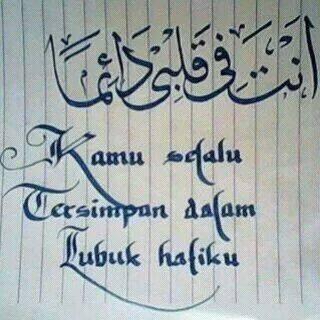 اَنْتَ فِى قَلْبِى دَائِمًا
Kamu selalu
Tersimpan dalam
Lubuk hatiku